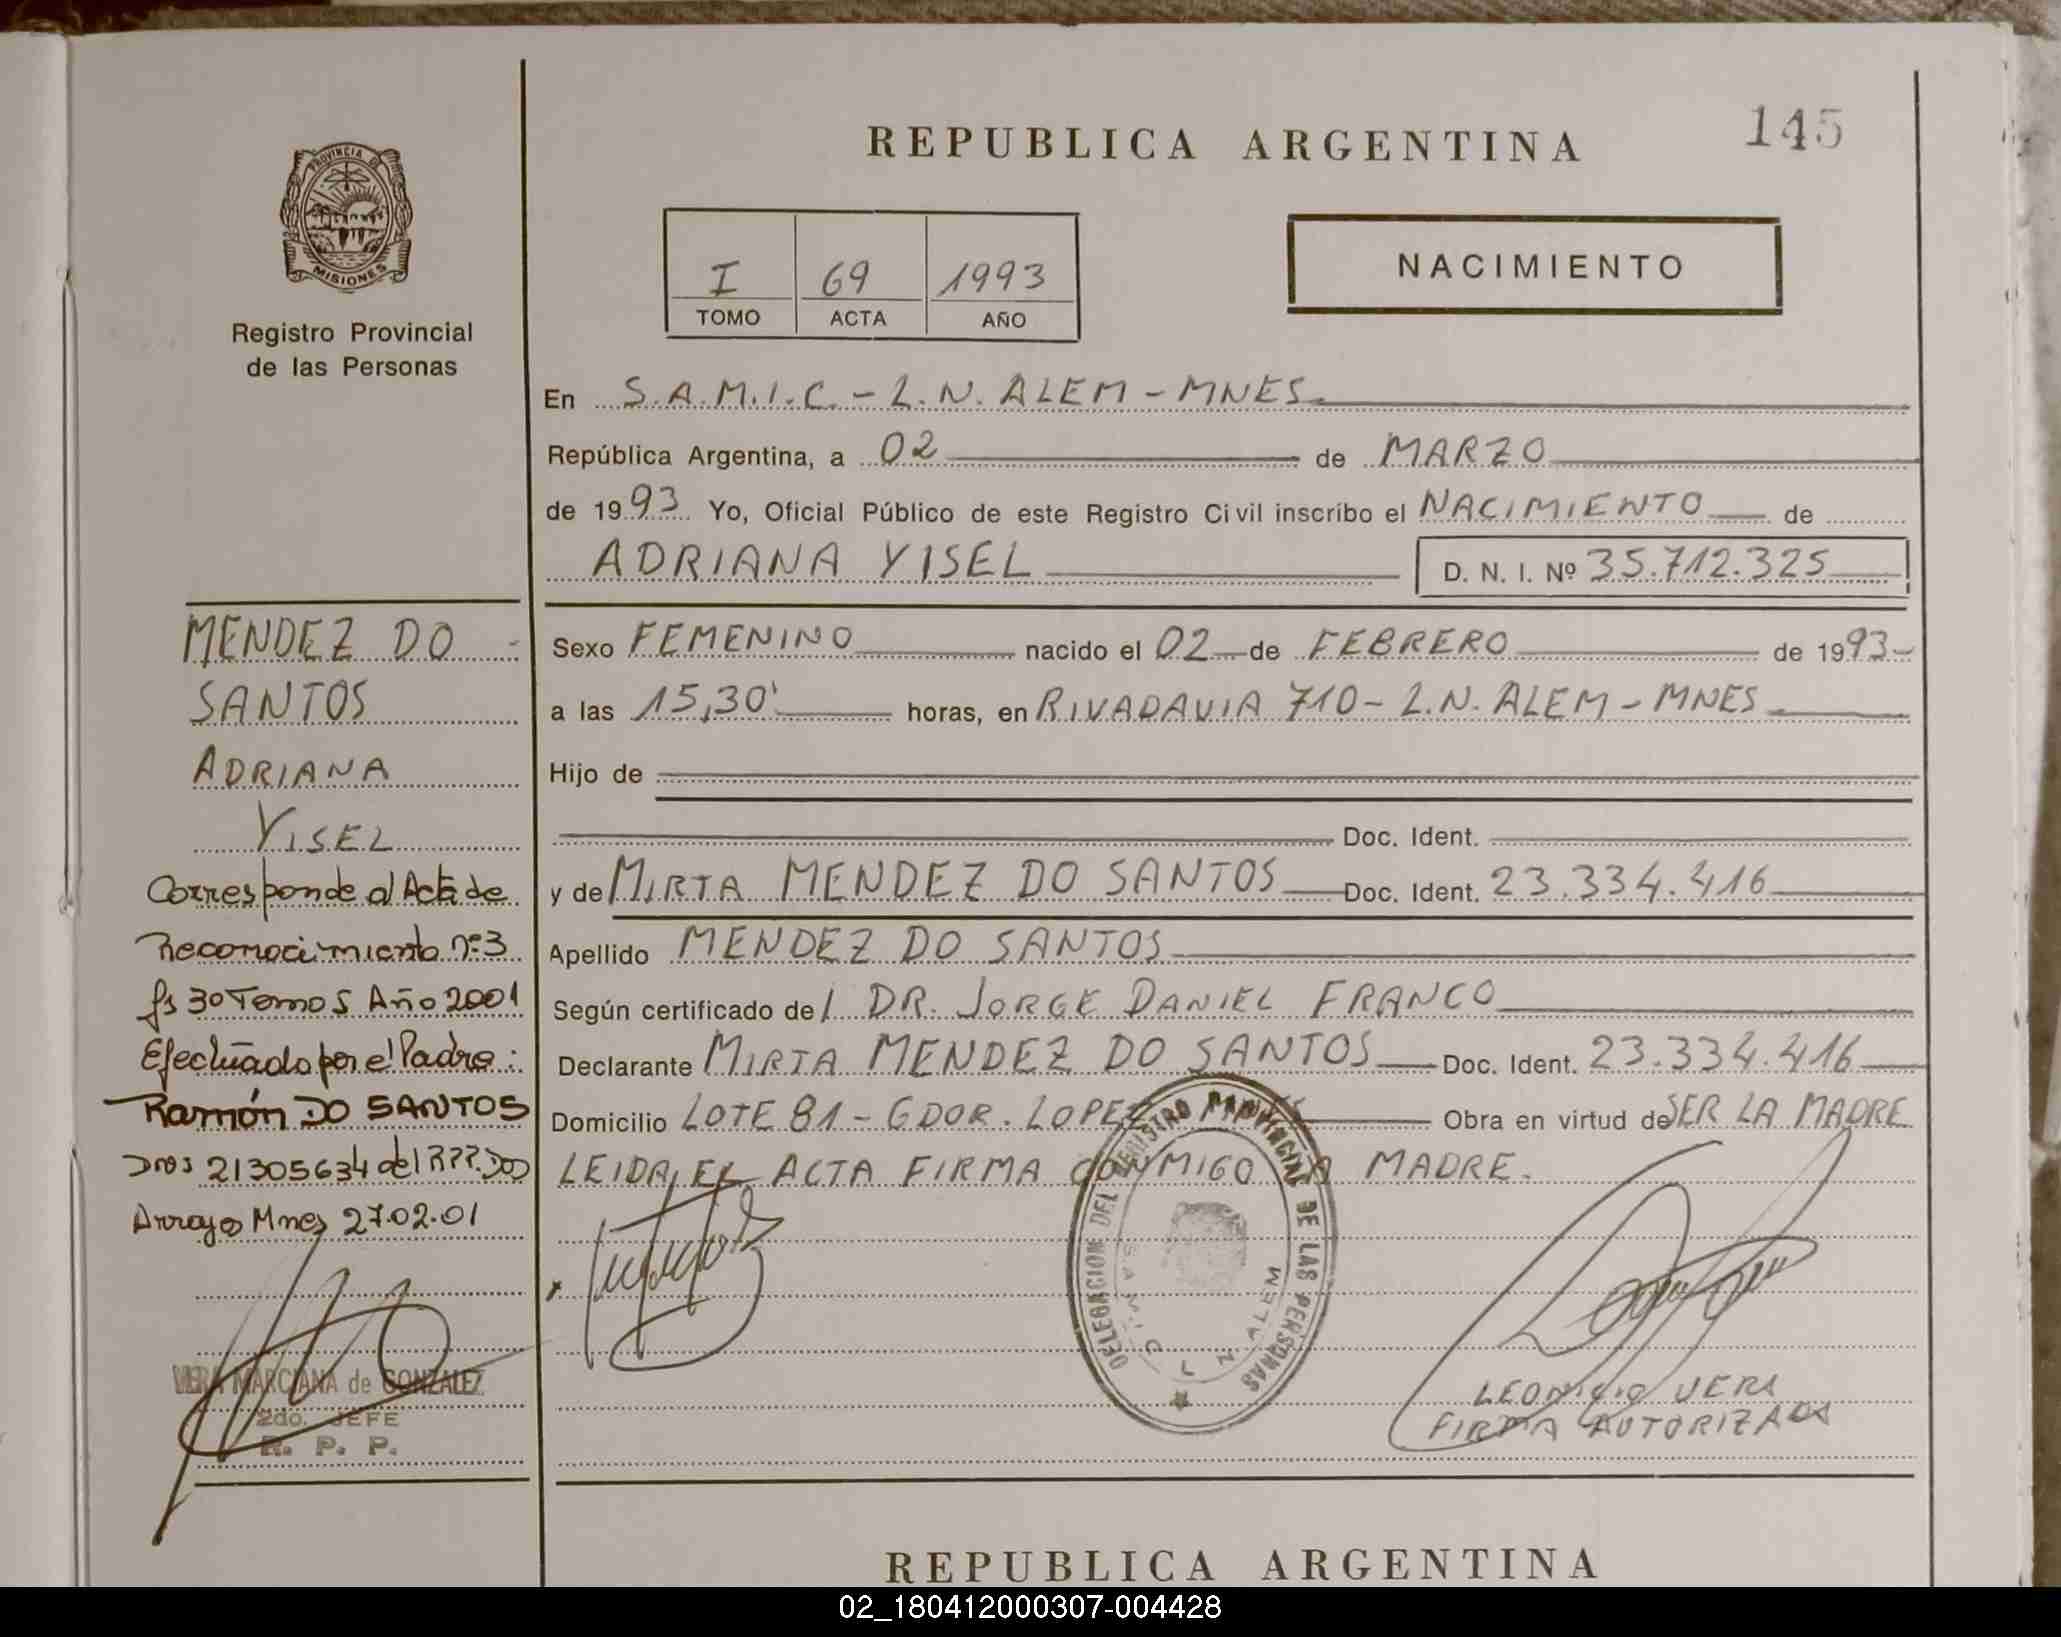 145
REPUBLICA ARGENTINA
PROVINCIA DE
MISIONES
Registro Provincial
de las Personas
I 69 1993
TOMO ACTA AÑO
NACIMIENTO
En S.A.M.I.C. - L.N. ALEM - MNES.
República Argentina, a 02 de MARZO
de 1993 Yo, Oficial Público de este Registro Civil inscribo el NACIMIENTO de
ADRIANA YISEL D. N. I. Nº 35.712.325
Sexo FEMENINO nacido el 02 de FEBRERO de 1993
a las 15,30' horas, en RIVADAVIA 710 - L.N. ALEM - MNES
Hijo de
Doc. Ident.
y de MIRTA MENDEZ DO SANTOS Doc. Ident. 23.334.416
Apellido MENDEZ DO SANTOS
Según certificado de DR. JORGE DANIEL FRANCO
Declarante MIRTA MENDEZ DO SANTOS Doc. Ident. 23.334.416
Domicilio LOTE 81 - GDOR. LOPEZ Obra en virtud de SER LA MADRE
LEIDA EL ACTA FIRMA CONMIGO MADRE.
DELEGACION DEL REGISTRO PROVINCIAL DE LAS PERSONAS
S.A.M.I.C. L N ALEM
LEONICIO VERA
FIRMA AUTORIZADA
MENDEZ DO
SANTOS
ADRIANA
YISEL
Corresponde al Acta de
Reconocimiento nº 3
fs 30 Tomo 5 Año 2001
Efectuado por el Padre:
Ramón DO SANTOS
21305634 del R.P.P. Dos
Arroyos Mnes 27.02.01
VERA MARCIANA de GONZALEZ
2do. JEFE
R. P. P.
REPUBLICA ARGENTINA
02_180412000307-004428